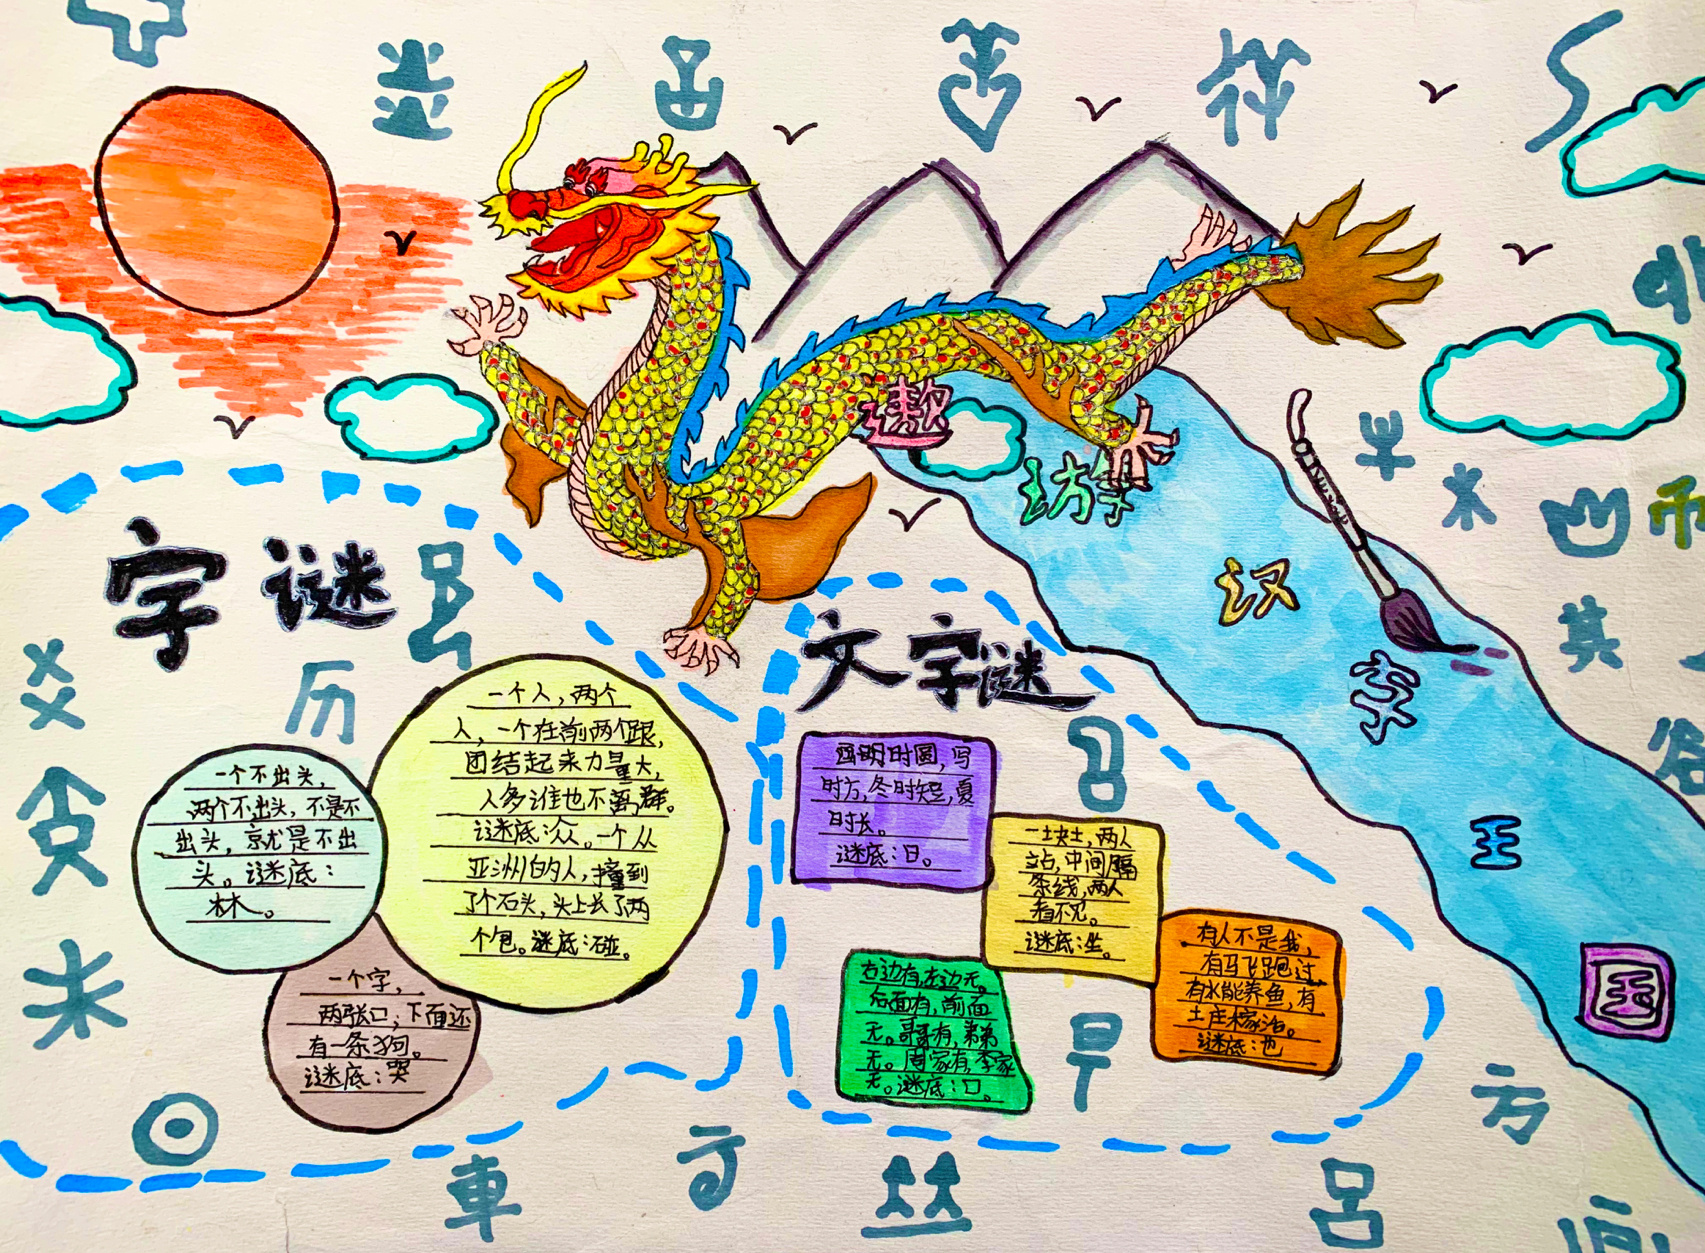 遨
游
汉
字
王
国
字谜
一个不出头，
两个不出头，不是不
出头，就是不出
头。谜底：
林。
一个人，两个
人，一个在前两个跟，
团结起来力量大，
人多谁也不离群。
谜底：众。一个从
亚洲来的人，撞到
了个石头，头上长了两
个包。谜底：碰。
一个字，
两张口；下面还
有一条狗。
谜底：哭
文字谜
画时圆，写
时方，冬时短，夏
时长。
谜底：日。
一块土，两人
站，中间隔
条线，两人
看不见。
谜底：坐。
右边有，左边无。
后面有，前面
无。哥哥有，弟弟
无。周家有，李家
无。谜底：口。
有人不是我，
有马飞跑过，
有水能养鱼，有
土庄稼活。
谜底：也
历
車
方
呂
其
早